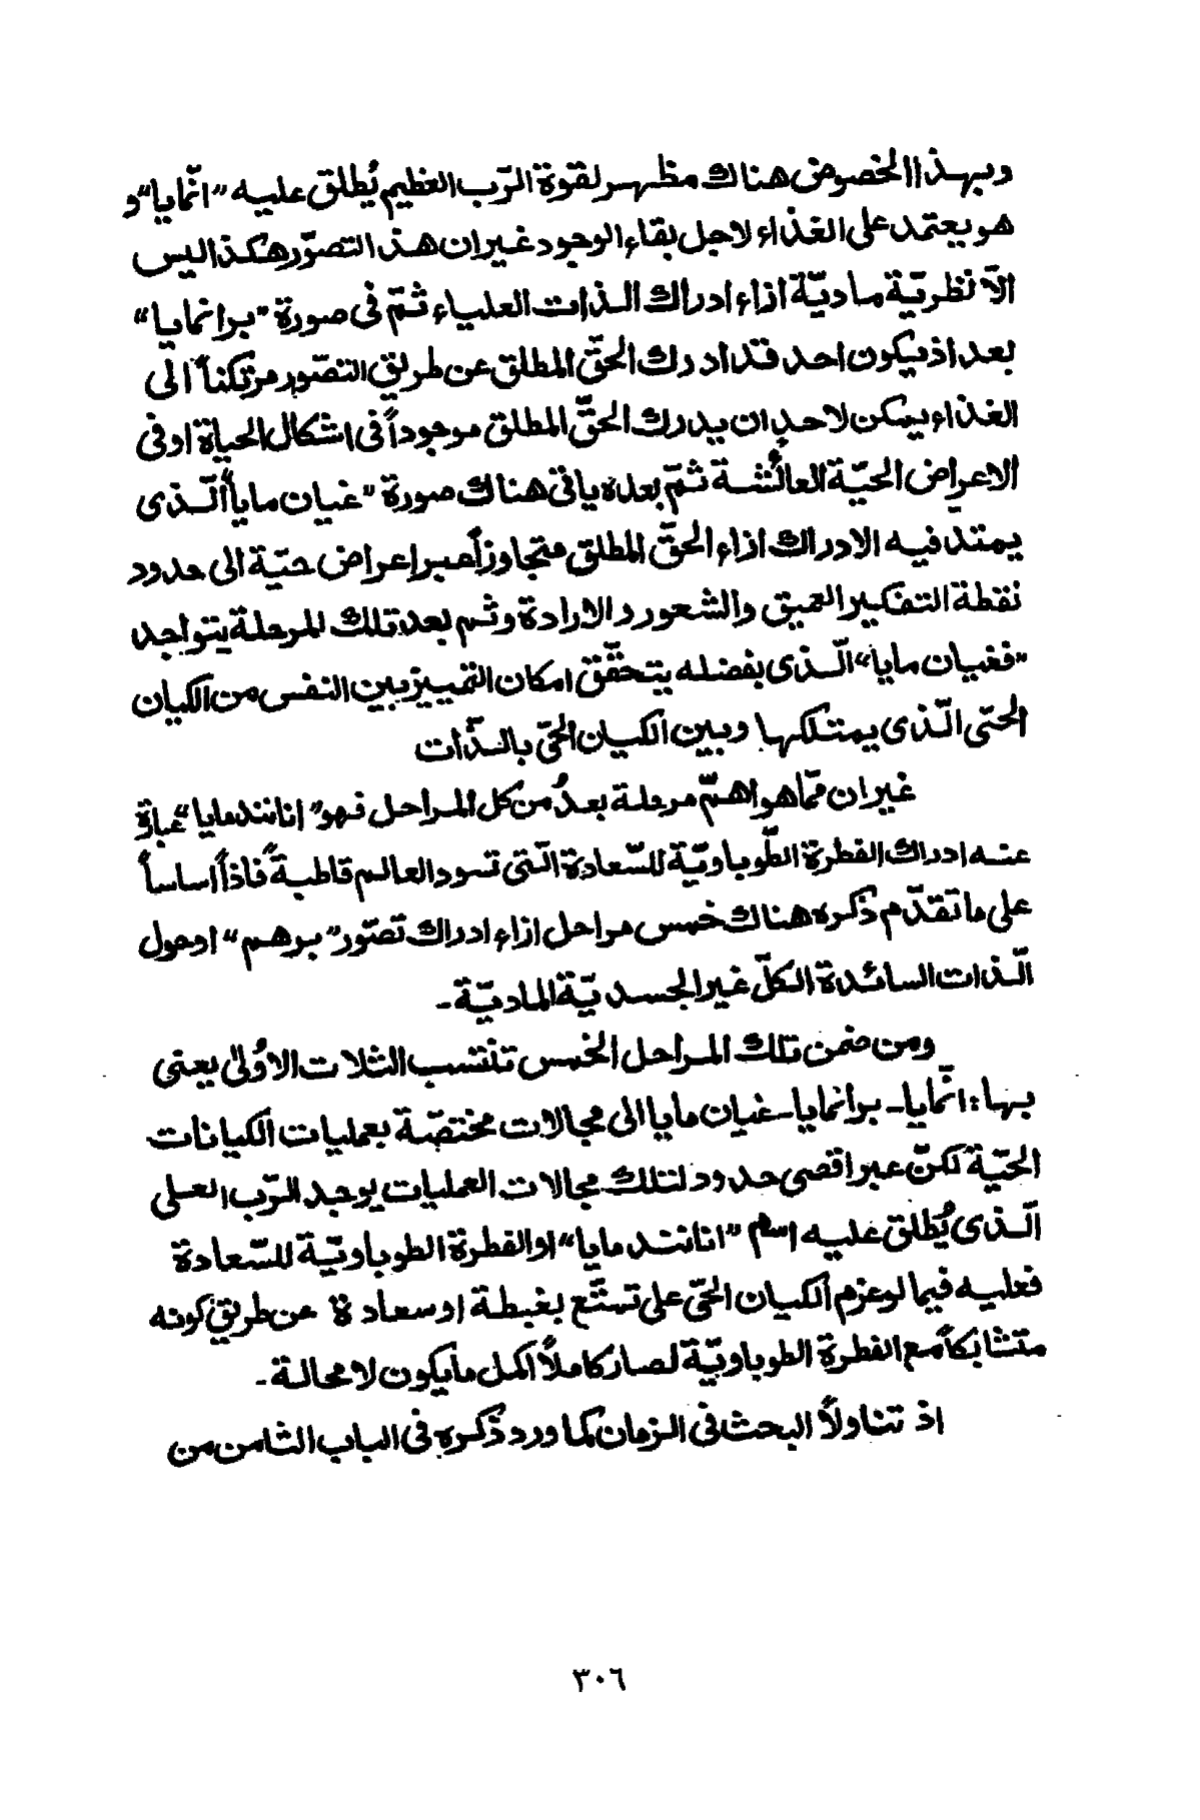 وبهذا الخصوص هناك مظهر لقوة الرّب العظيم يُطلق عليه "انّمايا" و
هو يعتمد على الغذاء لاجل بقاء الوجود غيران هذا التصوّر هكذا ليس
الّا نظريّة ماديّة ازاء ادراك الذات العلياء ثمّ فى صورة "برانمايا"
بعد اذ يكون احد قد ادرك الحقّ المطلق عن طريق التصّور مرتكناً الى
الغذاء يمكن لاحدٍ ان يدرك الحقّ المطلق موجوداً فى اشكال الحياة او فى
الاعراض الحيّة العائشة ثمّ بعده ياتى هناك صورة "غيان مايا" الّذى
يمتد فيه الادراك ازاء الحقّ المطلق متجاوزاً عبر اعراض حيّة الى حدود
نقطة التفكير العميق والشعور والارادة وثم بعد تلك المرحلة يتواجد
"فغيان مايا" الّذى بفضله يتحقّق امكان التمييز بين النفس من الكيان
الحّى الّذى يمتلكها وبين الكيان الحّى بالذّات
غيران ممّا هو اهمّ مرحلة بعدُ من كل المراحل فهو "انانند مايا" عبارة
عنه ادراك الفطرة الطّوباويّة للسّعادة الّتى تسود العالم قاطبةً فاذاً اساساً
على ما تقدّم ذكره هناك خمس مراحل ازاء ادراك تصّور "برهم" او حول
الّذات السائدة الكلّ غير الجسديّة الماديّة -
ومن ضمن تلك المراحل الخمس تنتسب الثلاث الاوُلىٰ يعنى
بها: انّمايا - برانمايا - غيان مايا الى مجالات مختصّة بعمليات الكيانات
الحيّة لكنّ عبر اقصى حدود لتلك مجالات العمليات يوجد الرّب العلى
الّذى يُطلق عليه اسم "انانند مايا" او الفطرة الطوباويّة للسّعادة
فعليه فيما لو عزم الكيان الحّى على تمتّع بغبطة او سعادة عن طريق كونه
متشابكاً مع الفطرة الطوباويّة لصار كاملاً اكمل ما يكون لا محالة -
اذ تناولاً البحث فى الزمان كما ورد ذُكره فى الباب الثامن من
٣٠٦